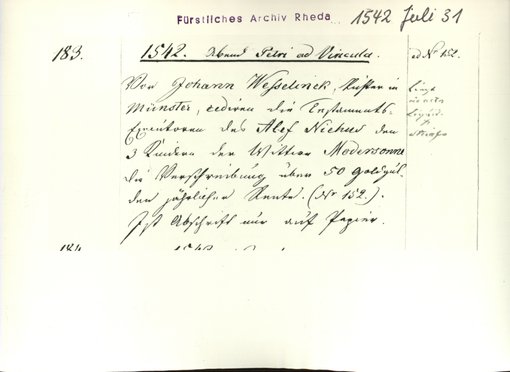 Fürstliches Archiv Rheda
1542 Juli 31
183. 1542. Abend Petri ad Vincula. ad No 152.
Von Johann Wesselinck, Küster in
Münster, cediren die Testaments-
Executoren des Alef Niehus den
3 Kindern der Wittwe Modersonne
die Verschreibung über 50 Goldgül-
den jährlicher Rente. (No 152.).
Ist Abschrift nur auf Papier.